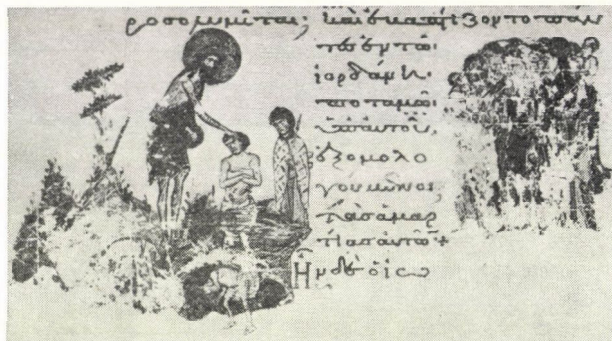 ροσολυμῖται· καὶ ἐβαπτίζοντο πάν
τες ἐν τῶ
ἰορδάνη
ποταμῶ
ὑπ' αὐτοῦ,
ἐξομολο
γούμενοι
τὰς ἁμαρ
τίας αὐτῶ+
Ἦν δὲ ὁ ἰω